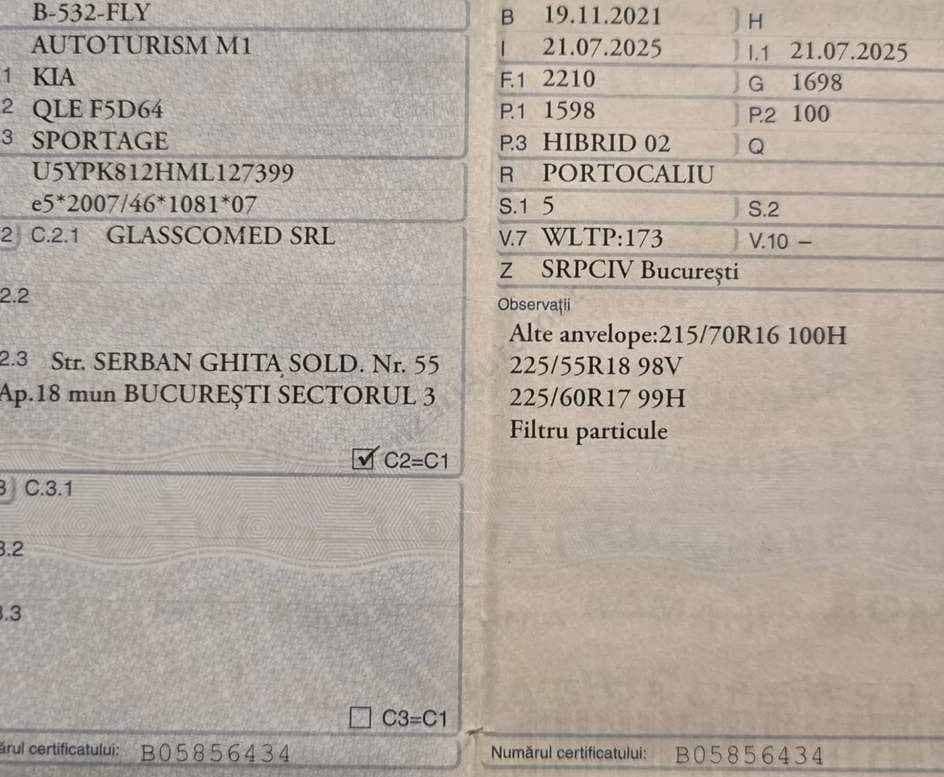 B-532-FLY
AUTOTURISM M1
1 KIA
2 QLE F5D64
3 SPORTAGE
U5YPK812HML127399
e5*2007/46*1081*07
2) C.2.1 GLASSCOMED SRL
2.2
2.3 Str. SERBAN GHIȚA SOLD. Nr. 55
Ap.18 mun BUCUREȘTI SECTORUL 3
C2=C1
3) C.3.1
3.2
3.3
C3=C1
ărul certificatului: B05856434
B 19.11.2021 H
I 21.07.2025 I.1 21.07.2025
F.1 2210 G 1698
P.1 1598 P.2 100
P.3 HIBRID 02 Q
R PORTOCALIU
S.1 5 S.2
V.7 WLTP:173 V.10 –
Z SRPCIV București
Observații
Alte anvelope:215/70R16 100H
225/55R18 98V
225/60R17 99H
Filtru particule
Numărul certificatului: B05856434